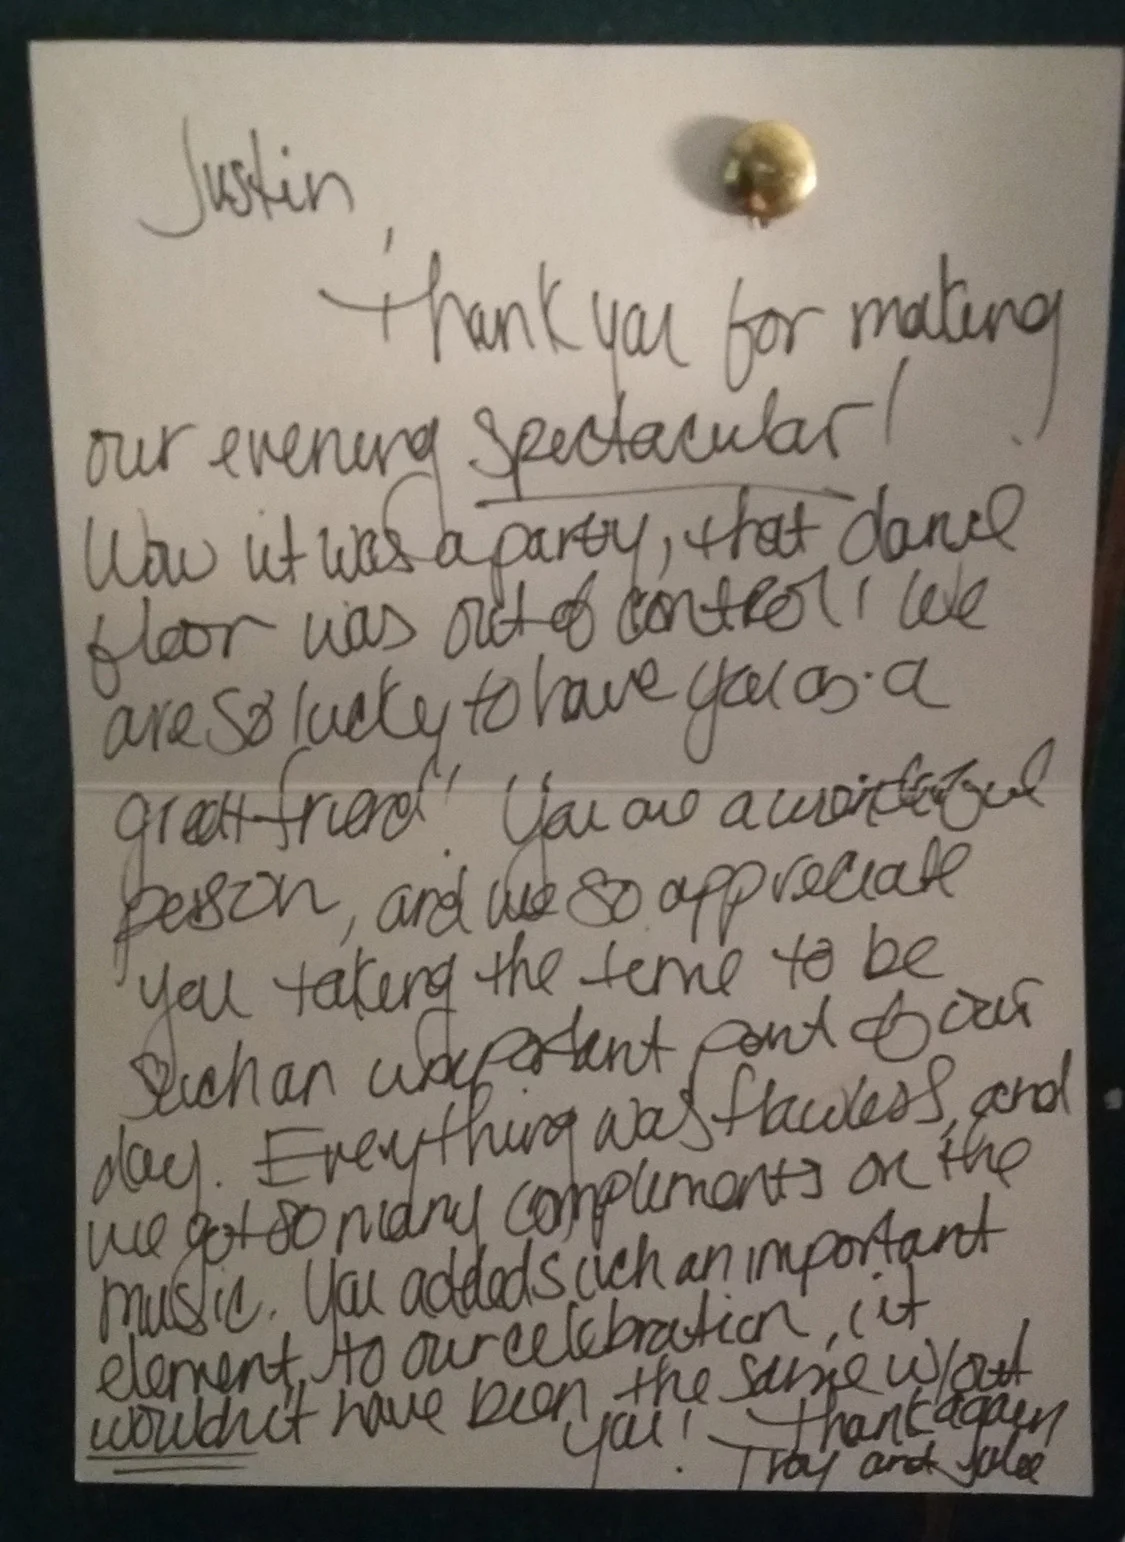 Justin,
Thank you for making
our evening spectacular!
Wow it was a party, that dance
floor was out of control! We
are so lucky to have you as a
great friend! You are a wonderful
person, and we so appreciate
you taking the time to be
such an important part of our
day. Everything was flawless, and
we got so many compliments on the
music. You added such an important
element to our celebration, it
wouldn't have been the same w/out
you! Thank again
Troy and